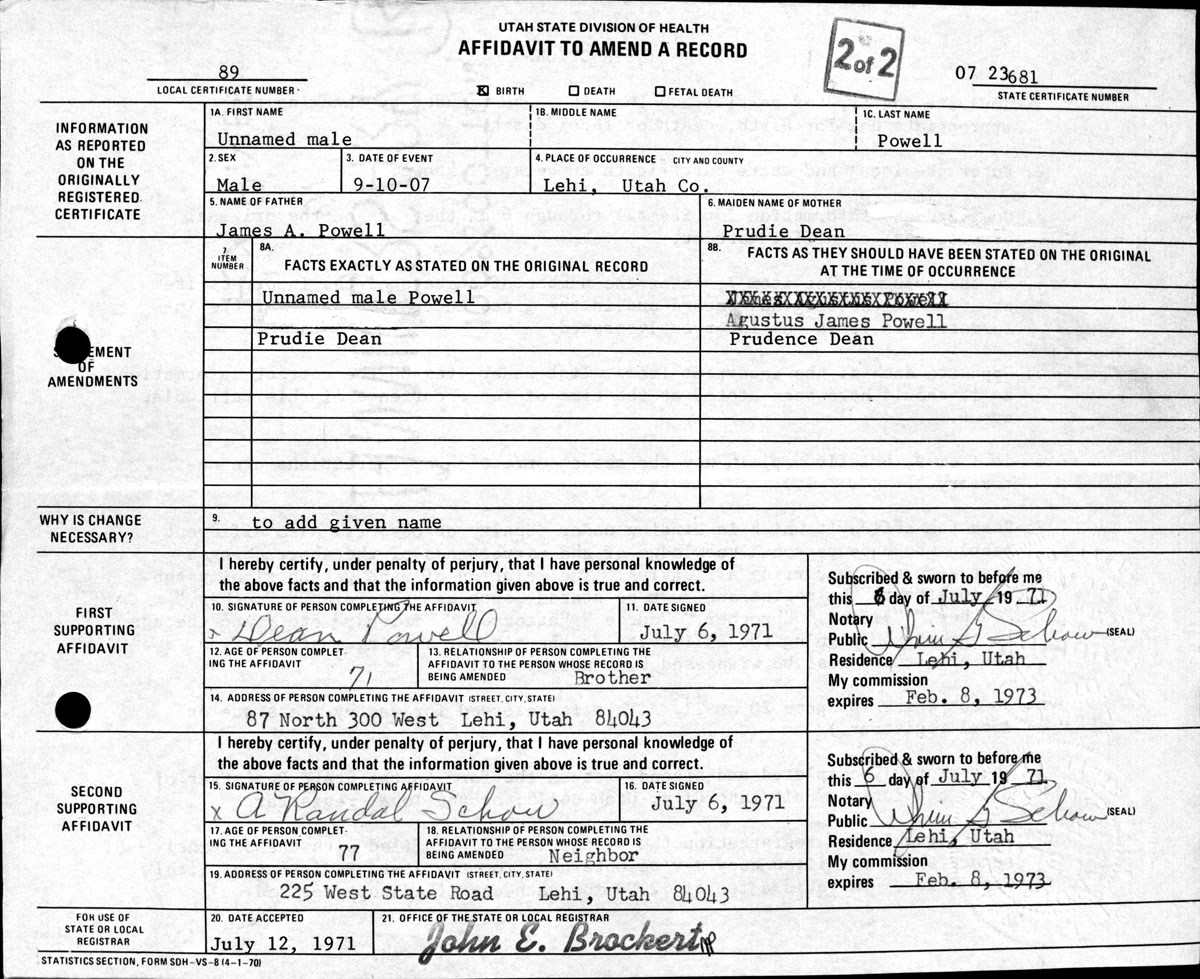 UTAH STATE DIVISION OF HEALTH
AFFIDAVIT TO AMEND A RECORD
2 of 2
89
LOCAL CERTIFICATE NUMBER
X BIRTH DEATH FETAL DEATH
07 23681
STATE CERTIFICATE NUMBER
INFORMATION AS REPORTED ON THE ORIGINALLY REGISTERED CERTIFICATE
1A. FIRST NAME 1B. MIDDLE NAME 1C. LAST NAME
Unnamed male Powell
2. SEX 3. DATE OF EVENT 4. PLACE OF OCCURRENCE - CITY AND COUNTY
Male 9-10-07 Lehi, Utah Co.
5. NAME OF FATHER 6. MAIDEN NAME OF MOTHER
James A. Powell Prudie Dean
7. ITEM NUMBER
8A. FACTS EXACTLY AS STATED ON THE ORIGINAL RECORD
8B. FACTS AS THEY SHOULD HAVE BEEN STATED ON THE ORIGINAL
AT THE TIME OF OCCURRENCE
OF
AMENDMENTS
Unnamed male Powell
Agustus James Powell
Prudie Dean Prudence Dean
WHY IS CHANGE NECESSARY?
9. to add given name
FIRST SUPPORTING AFFIDAVIT
I hereby certify, under penalty of perjury, that I have personal knowledge of
the above facts and that the information given above is true and correct.
10. SIGNATURE OF PERSON COMPLETING THE AFFIDAVIT 11. DATE SIGNED
x Dean Powell July 6, 1971
12. AGE OF PERSON COMPLETING THE AFFIDAVIT
71
13. RELATIONSHIP OF PERSON COMPLETING THE
AFFIDAVIT TO THE PERSON WHOSE RECORD IS
BEING AMENDED Brother
14. ADDRESS OF PERSON COMPLETING THE AFFIDAVIT (STREET, CITY, STATE)
87 North 300 West Lehi, Utah 84043
Subscribed & sworn to before me
this 6 day of July 19 71
Notary
Public (SEAL)
Residence Lehi, Utah
My commission
expires Feb. 8, 1973
SECOND SUPPORTING AFFIDAVIT
I hereby certify, under penalty of perjury, that I have personal knowledge of
the above facts and that the information given above is true and correct.
15. SIGNATURE OF PERSON COMPLETING THE AFFIDAVIT 16. DATE SIGNED
x A Randal Schow July 6, 1971
17. AGE OF PERSON COMPLETING THE AFFIDAVIT
77
18. RELATIONSHIP OF PERSON COMPLETING THE
AFFIDAVIT TO THE PERSON WHOSE RECORD IS
BEING AMENDED Neighbor
19. ADDRESS OF PERSON COMPLETING THE AFFIDAVIT (STREET, CITY, STATE)
225 West State Road Lehi, Utah 84043
Subscribed & sworn to before me
this 6 day of July 19 71
Notary
Public (SEAL)
Residence Lehi, Utah
My commission
expires Feb. 8, 1973
FOR USE OF STATE OR LOCAL REGISTRAR
20. DATE ACCEPTED 21. OFFICE OF THE STATE OR LOCAL REGISTRAR
July 12, 1971 John E. Brockert
STATISTICS SECTION, FORM SDH-VS-8 (4-1-70)